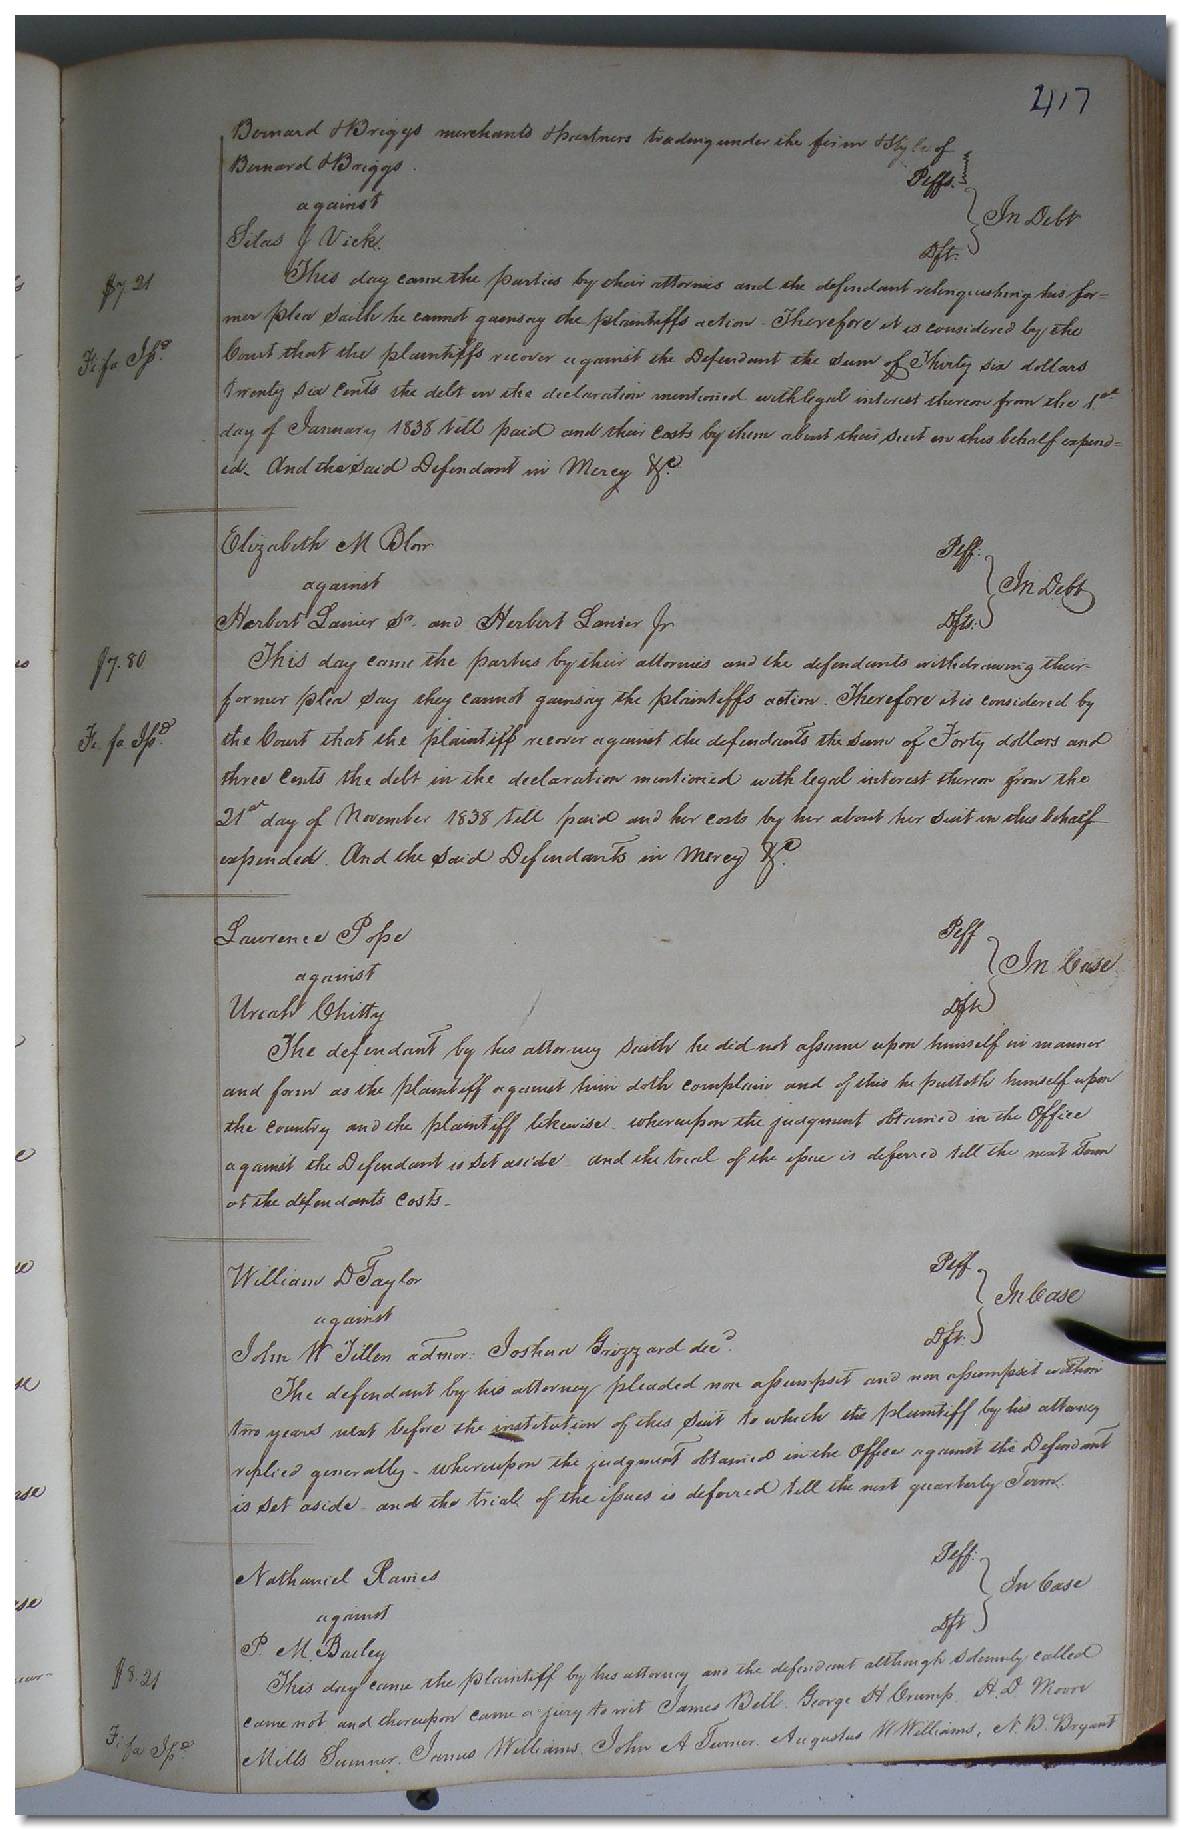 417
Bernard & Briggs merchants & partners trading under the firm & Style of
Bernard & Briggs. Plffs.
against
In Debt
Silas J Vick. Dft.
$7 21
This day came the parties by their attornies and the defendant relinquishing his for=
mer plea saith he cannot gainsay the plaintiffs action. Therefore it is considered by the
Fi: fa Issd.
Court that the plaintiffs recover against the Defendant the sum of Thirty six dollars
Twenty six cents the debt in the declaration mentioned with legal interest thereon from the 1st
day of January 1838 till paid and their costs by them about their suit in this behalf expend=
ed. And the said Defendant in Mercy &c.
Elizabeth M Blow Plff.
against
In Debt
Herbert Lanier Sr. and Herbert Lanier Jr Dfts.
$7.80
This day came the parties by their attornies and the defendants withdrawing their
former plea say they cannot gainsay the plaintiffs action. Therefore it is considered by
Fi. fa Issd.
the Court that the plaintiff recover against the defendants the sum of Forty dollars and
three cents the debt in the declaration mentioned with legal interest thereon from the
21st day of November 1838 till paid and her costs by her about her suit in this behalf
expended. And the said Defendants in Mercy &c.
Lawrence Pope Plff
against
In Case
Uriah Chitty Dft
The defendant by his attorney saith he did not assume upon himself in manner
and form as the plaintiff against him doth complain and of this he putteth himself upon
the country and the plaintiff likewise. whereupon the judgment obtained in the Office
against the Defendant is set aside and the trial of the issue is deferred till the next Term
at the defendants costs.
William D Taylor Plff
against
In Case
John W Tillen admor: Joshua Grizzard decd. Dft.
The defendant by his attorney pleaded non assumpsit and non assumpsit within
two years next before the institution of this suit to which the plaintiff by his attorney
replied generally - whereupon the judgment obtained in the Office against the Defendant
is set aside - and the trial of the issues is deferred till the next quarterly Term.
Nathaniel Raines Plff.
against
In Case
P. M. Bailey Dft
$8.21
This day came the plaintiff by his attorney and the defendant although solemnly called
came not and thereupon came a jury to wit James Bell. George H Crump. H. D. Moore
Fi. fa Issd.
Mills Sumner. James Williams. John A Turner. Augustus W Williams, N. B. Bryant